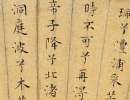 珮兮澧浦采
時不可兮再得
帝子降兮北渚
洞庭波兮木葉